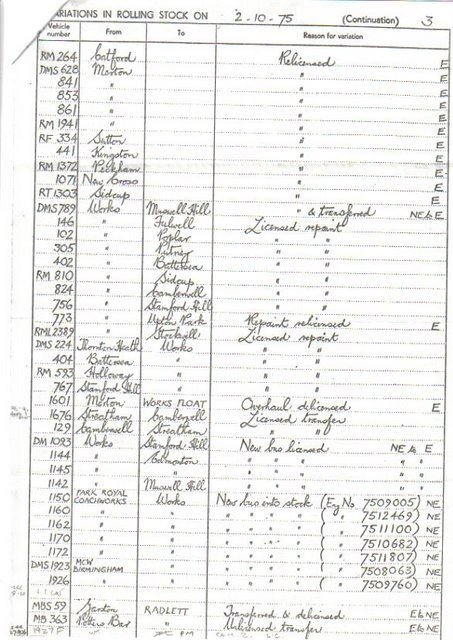 VARIATIONS IN ROLLING STOCK ON 2-10-75 (Continuation) 3
Vehicle number From To Reason for variation
RM 264 Catford Relicensed E
DMS 628 Merton " E
841 " " E
853 " " E
861 " " E
RM 1941 " " E
RF 334 Sutton " E
441 Kingston " E
RM 1372 Peckham " E
1071 New Cross " E
RT 1303 Sidcup " E
DMS 789 Works Muswell Hill " & transferred NE & E
146 " Fulwell Licensed repaint
102 " Poplar " "
305 " Putney " "
402 " Battersea " "
RM 810 " Sidcup " "
824 " Camberwell " "
756 " Stamford Hill " "
773 " Upton Park Repaint relicensed E
RML 2389 " Stockwell Licensed repaint
DMS 224 Thornton Heath Works " "
404 Battersea " " "
RM 593 Holloway " " "
767 Stamford Hill " " "
1601 Merton WORKS FLOAT Overhaul delicensed E
1676 Streatham Camberwell Licensed transfer
129 Camberwell Streatham " "
DM 1093 Works Stamford Hill New bus licensed NE & E
1144 " Edmonton " " " " " "
1145 " " " " " " " "
1142 " Muswell Hill " " " " " "
1150 PARK ROYAL COACHWORKS Works New bus into stock (Eng No 7509005) NE
1160 " " " " " " ( " 7512469) NE
1162 " " " " " " ( " 7511100) NE
1170 " " " " " " ( " 7510682) NE
1172 " " " " " " ( " 7511807) NE
DMS 1923 MCW BIRMINGHAM " " " " " ( " 7508063) NE
1926 " " " " " " ( " 7509760) NE
MBS 59 Garston RADLETT Transferred & delicensed E & NE
MB 363 Potters Bar " Unlicensed transfer E & NE